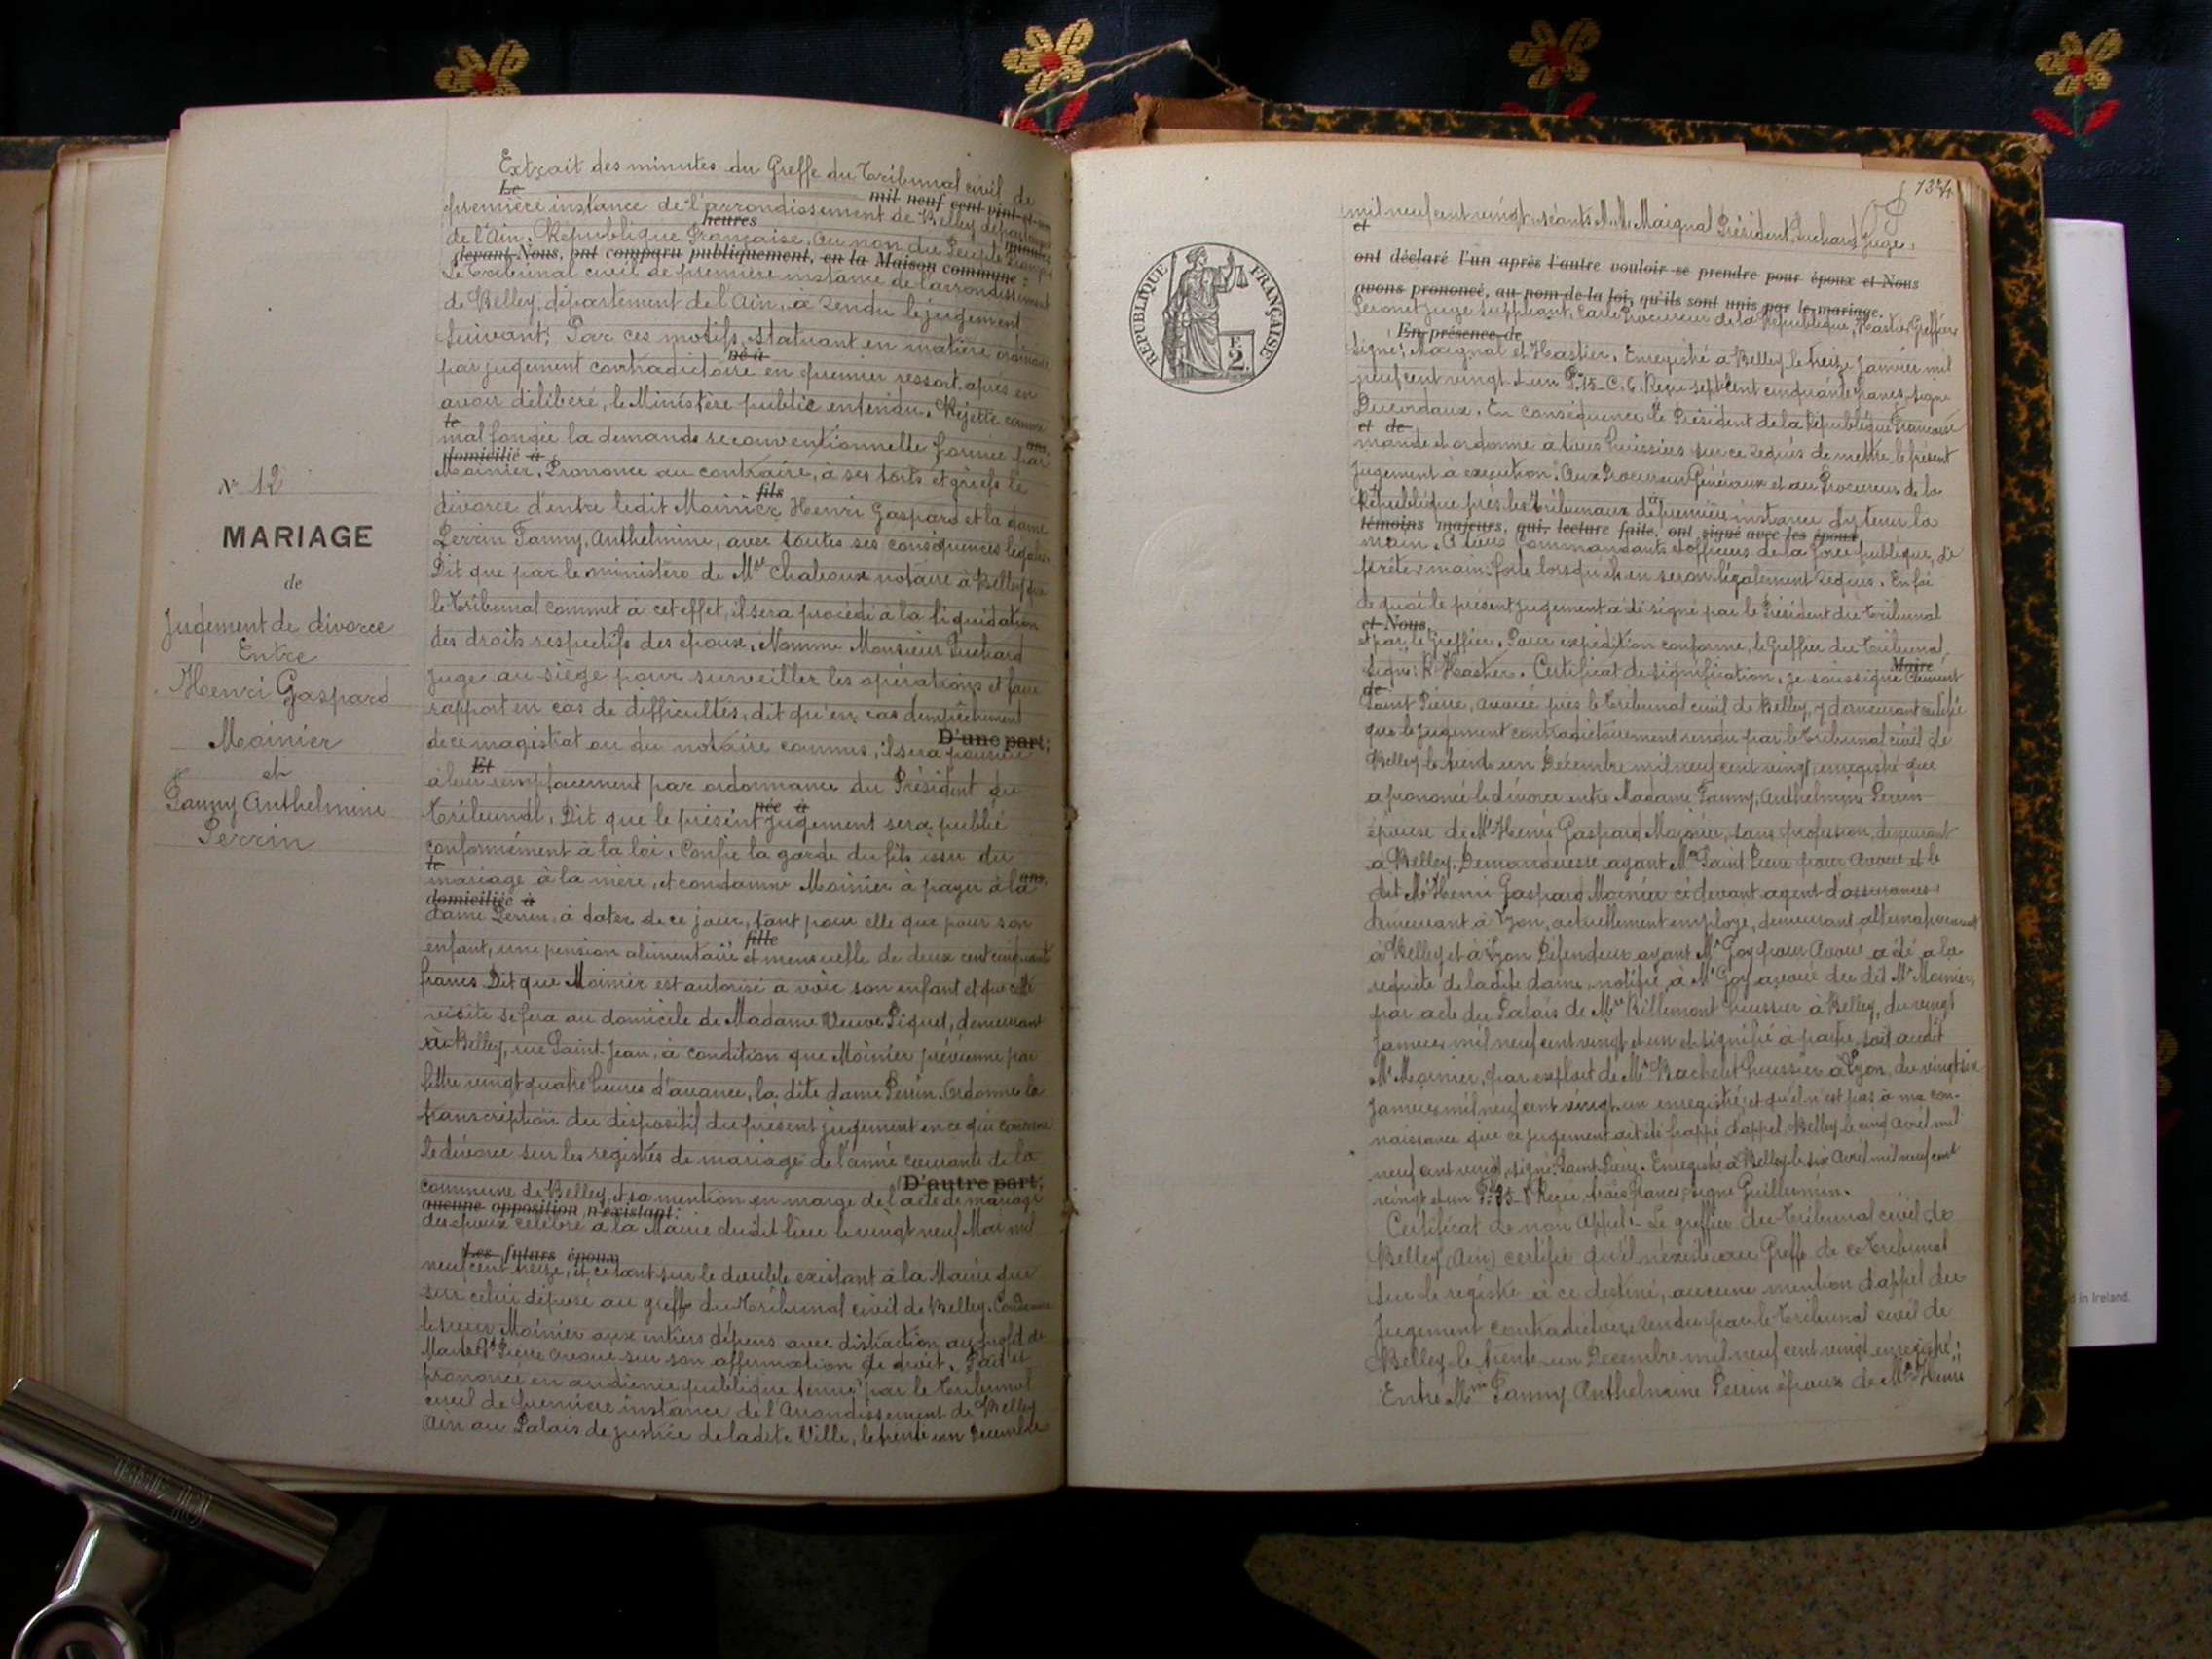 N° 12
MARIAGE
de
Jugement de divorce
Entre
Henri Gaspard
Moinier
et
Fanny Anthelmine
Perrin
Extrait des minutes du Greffe du Tribunal civil de
Le mil neuf cent vint et un
première instance de l'arrondissement de Belley département
heures
de l'Ain. République Française. Au nom du Peuple Français
minutes
devant Nous, ont comparu publiquement, en la Maison commune :
Le Tribunal civil de première instance de l'arrondissement
de Belley, département de l'Ain, a rendu le jugement
suivant: Par ces motifs, statuant en matière ordinaire
né à
par jugement contradictoire en premier ressort, après en
avoir délibéré, le Ministère public entendu. Rejette comme
le ans,
mal fondée la demande reconventionnelle formée par
domicilié à
Moinier. Prononce au contraire, à ses torts et griefs le
fils
divorce d'entre ledit Moinier Henri Gaspard et la dame
Perrin Fanny, Anthelmine, avec toutes ses conséquences légales.
Dit que par le ministère de Me Chaboux notaire à Belley que
le Tribunal commet à cet effet, il sera procédé à la liquidation
des droits respectifs des époux. Nomme Monsieur Puchard
juge au siège pour surveiller les opérations et faire
rapport en cas de difficultés, dit qu'en cas d'empêchement
D'une part;
de ce magistrat ou du notaire commis, il sera pourvu
Et
à leur remplacement par ordonnance du Président du
née à
Tribunal. Dit que le présent jugement sera publié
conformément à la loi. Confie la garde du fils issu du
le ans,
mariage à la mère, et condamne Moinier à payer à la
domiciliée à
dame Perrin, à dater de ce jour, tant pour elle que pour son
fille
enfant, une pension alimentaire et mensuelle de deux cent cinquante
francs. Dit que Moinier est autorisé à voir son enfant et que cette
visite se fera au domicile de Madame Veuve Piquet, demeurant
à Belley, rue Saint-Jean, à condition que Moinier prévienne par
lettre vingt quatre heures d'avance, la dite dame Perrin. Ordonne la
transcription du dispositif du présent jugement en ce qui concerne
le divorce sur les registres de mariage de l'année courante de la
D'autre part;
commune de Belley, et sa mention en marge de l'acte de mariage
aucune opposition n'existant:
des époux célébré à la Mairie dudit lieu le vingt neuf Mai mil
Les futurs époux
neuf cent treize, et ce tant sur le double existant à la Mairie que
sur celui déposé au greffe du Tribunal civil de Belley. Condamne
le sieur Moinier aux entiers dépens avec distraction au profit de
Maitre St Pierre avoué sur son affirmation de droit. Fait et
prononcé en audience publique tenue par le Tribunal
civil de première instance de l'Arrondissement de Belley
Ain au Palais de justice de ladite Ville, le trente un Décembre
134
RÉPUBLIQUE FRANÇAISE
2F.
mil neuf cent vingt séants M.M. Maignal Président, Puchard Juge,
et
ont déclaré l'un après l'autre vouloir se prendre pour époux et Nous
avons prononcé, au nom de la loi, qu'ils sont unis par le mariage.
Peronet juge suppléant, Carle Procureur de la République, Hastier Greffier
En présence de
Signé: Maignal et Hastier. Enregistré à Belley le treize Janvier mil
neuf cent vingt et un F° 15 C. 6. Reçu sept cent cinquante francs, signé
En conséquence le Président de la République Française
et de
mande et ordonne à tous huissiers sur ce requis de mettre le présent
jugement à exécution. Aux Procureurs Généraux et au Procureur de la
République près les Tribunaux de première instance d'y tenir la
témoins majeurs, qui, lecture faite, ont signé avec les époux
main. A tous Commandants et officiers de la force publique, de
prêter main-forte lorsqu'ils en seront légalement requis. En foi
de quoi le présent jugement a été signé par le Président du Tribunal
et Nous,
et par le Greffier. Pour expédition conforme, le Greffier du Tribunal,
Maire
Signé: R. Hastier. Certificat de signification. Je soussigné Clément
de
Saint Pierre, avoué près le Tribunal civil de Belley, y demeurant certifie
que le jugement contradictoirement rendu par le Tribunal civil de
Belley le trente un Décembre mil neuf cent vingt, enregistré que
a prononcé le divorce entre Madame Fanny, Anthelmine Perrin
épouse de Mr Henri Gaspard Moinier, sans profession, demeurant
à Belley, Demanderesse ayant Me Saint Pierre pour Avoué et le
dit Mr Henri Gaspard Moinier ci devant agent d'assurances,
demeurant à Lyon, actuellement employé, demeurant alternativement
à Belley et à Lyon Défendeur ayant Me Goy pour Avoué a été a la
requête de ladite dame, notifié à Me Goy avoué du dit Mr Moinier,
par acte du Palais de Me Billemont huissier à Belley, du vingt
Janvier mil neuf cent vingt et un et signifié à partie, soit audit
Mr Moinier, par exploit de Me Bachelet huissier à Lyon, du vingt six
Janvier mil neuf cent vingt un enregistré, et qu'il n'est pas à ma con-
naissance que ce jugement ait été frappé d'appel. Belley le cinq Avril mil
neuf cent vingt, signé: Saint Pierre. Enregistré à Belley le six Avril mil neuf cent
vingt et un Reçu trois francs, signé Guillermin.
Certificat de non Appel. Le greffier du Tribunal civil de
Belley (Ain) certifie qu'il n'existe au Greffe de ce Tribunal
sur le registre à ce destiné, aucune mention d'appel du
jugement contradictoire rendu par le Tribunal civil de
Belley le trente un Décembre mil neuf cent vingt enregistré:
Entre Mme Fanny Anthelmine Perrin épouse de Mr Henri
d in Ireland.